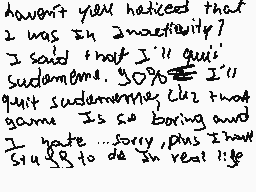 haven't you noticed that
I was in Inactivity?
I said that I'll quit
sudomemo. 90% I'll
quit sudomemo, cuz that
game Is so boring and
I hate ...sorry, plus I have
stuff to do in real life